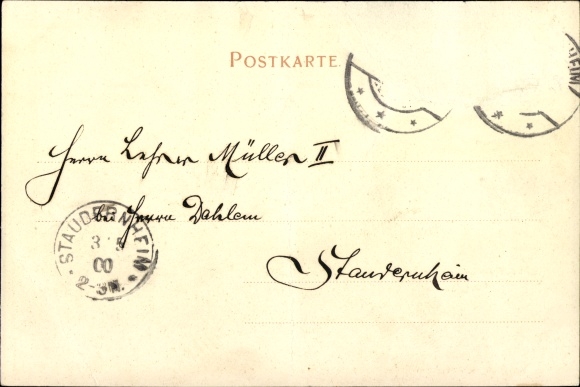 POSTKARTE
HEIM
Herrn Lehrer Müller II
bei Herrn Dahlem
Staudernheim
STAUDERNHEIM
3 5
00
2-3N.